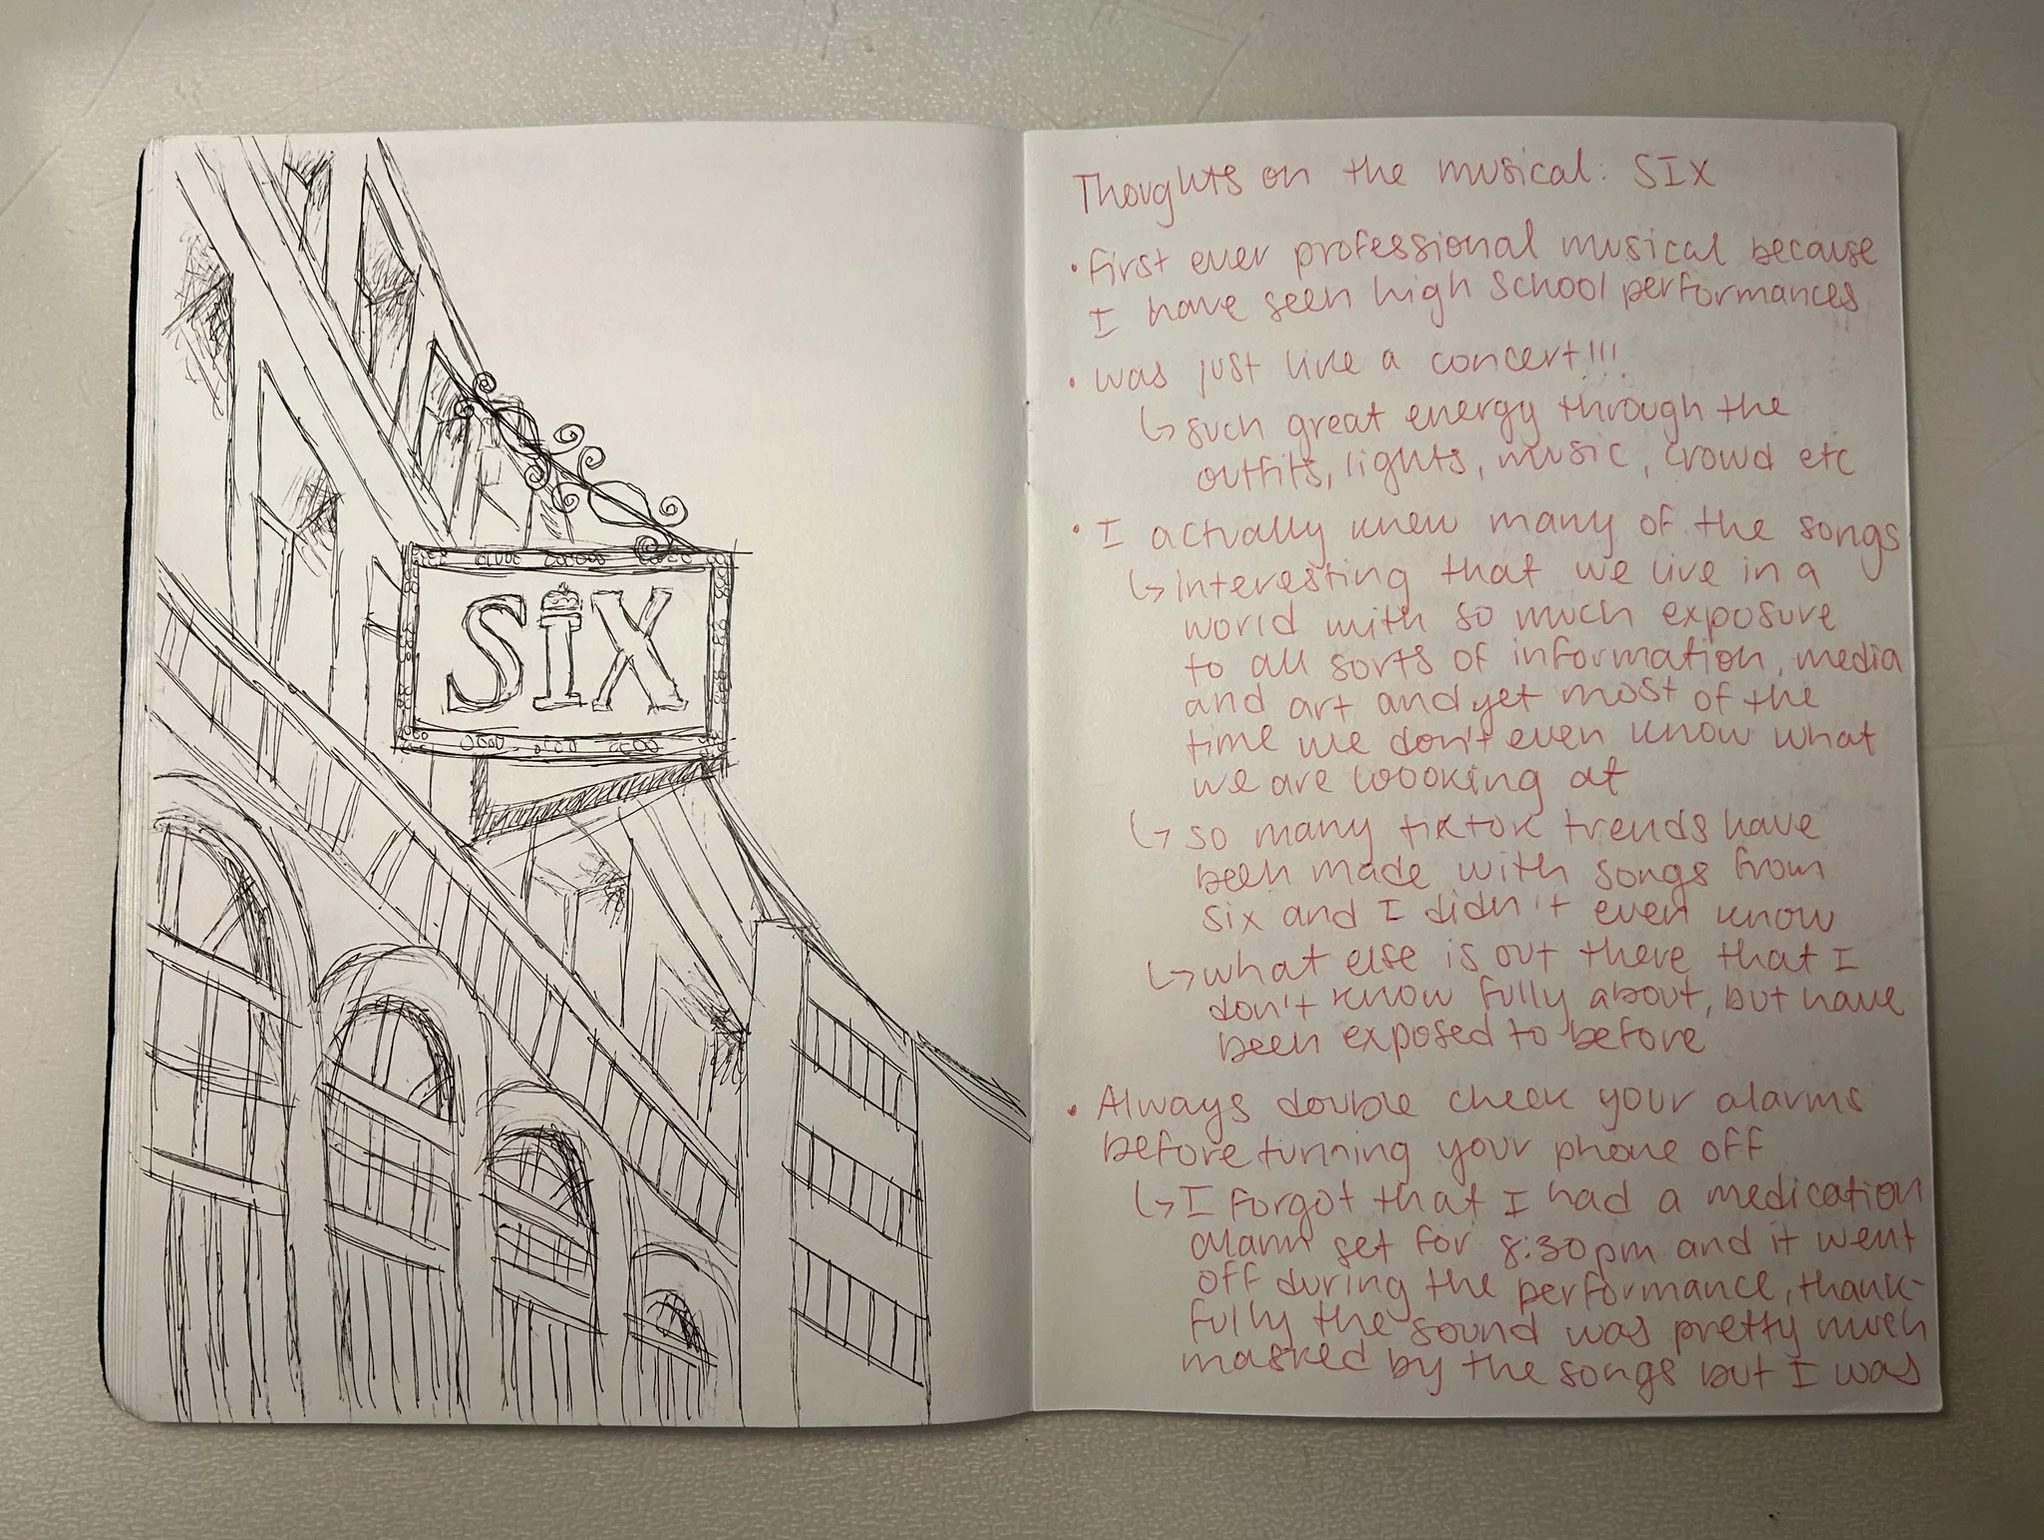 SIX
Thoughts on the musical: SIX
• First ever professional musical because
I have seen high school performances
• was just like a concert!!!
↳ such great energy through the
outfits, lights, music, crowd etc
• I actually knew many of the songs
↳ Interesting that we live in a
world with so much exposure
to all sorts of information, media
and art and yet most of the
time we don't even know what
we are looking at
↳ so many tiktok trends have
been made with songs from
six and I didn't even know
↳ what else is out there that I
don't know fully about, but have
been exposed to before
• Always double check your alarms
before turning your phone off
↳ I forgot that I had a medication
alarm set for 8:30pm and it went
off during the performance, thank-
fully the sound was pretty much
masked by the songs but I was